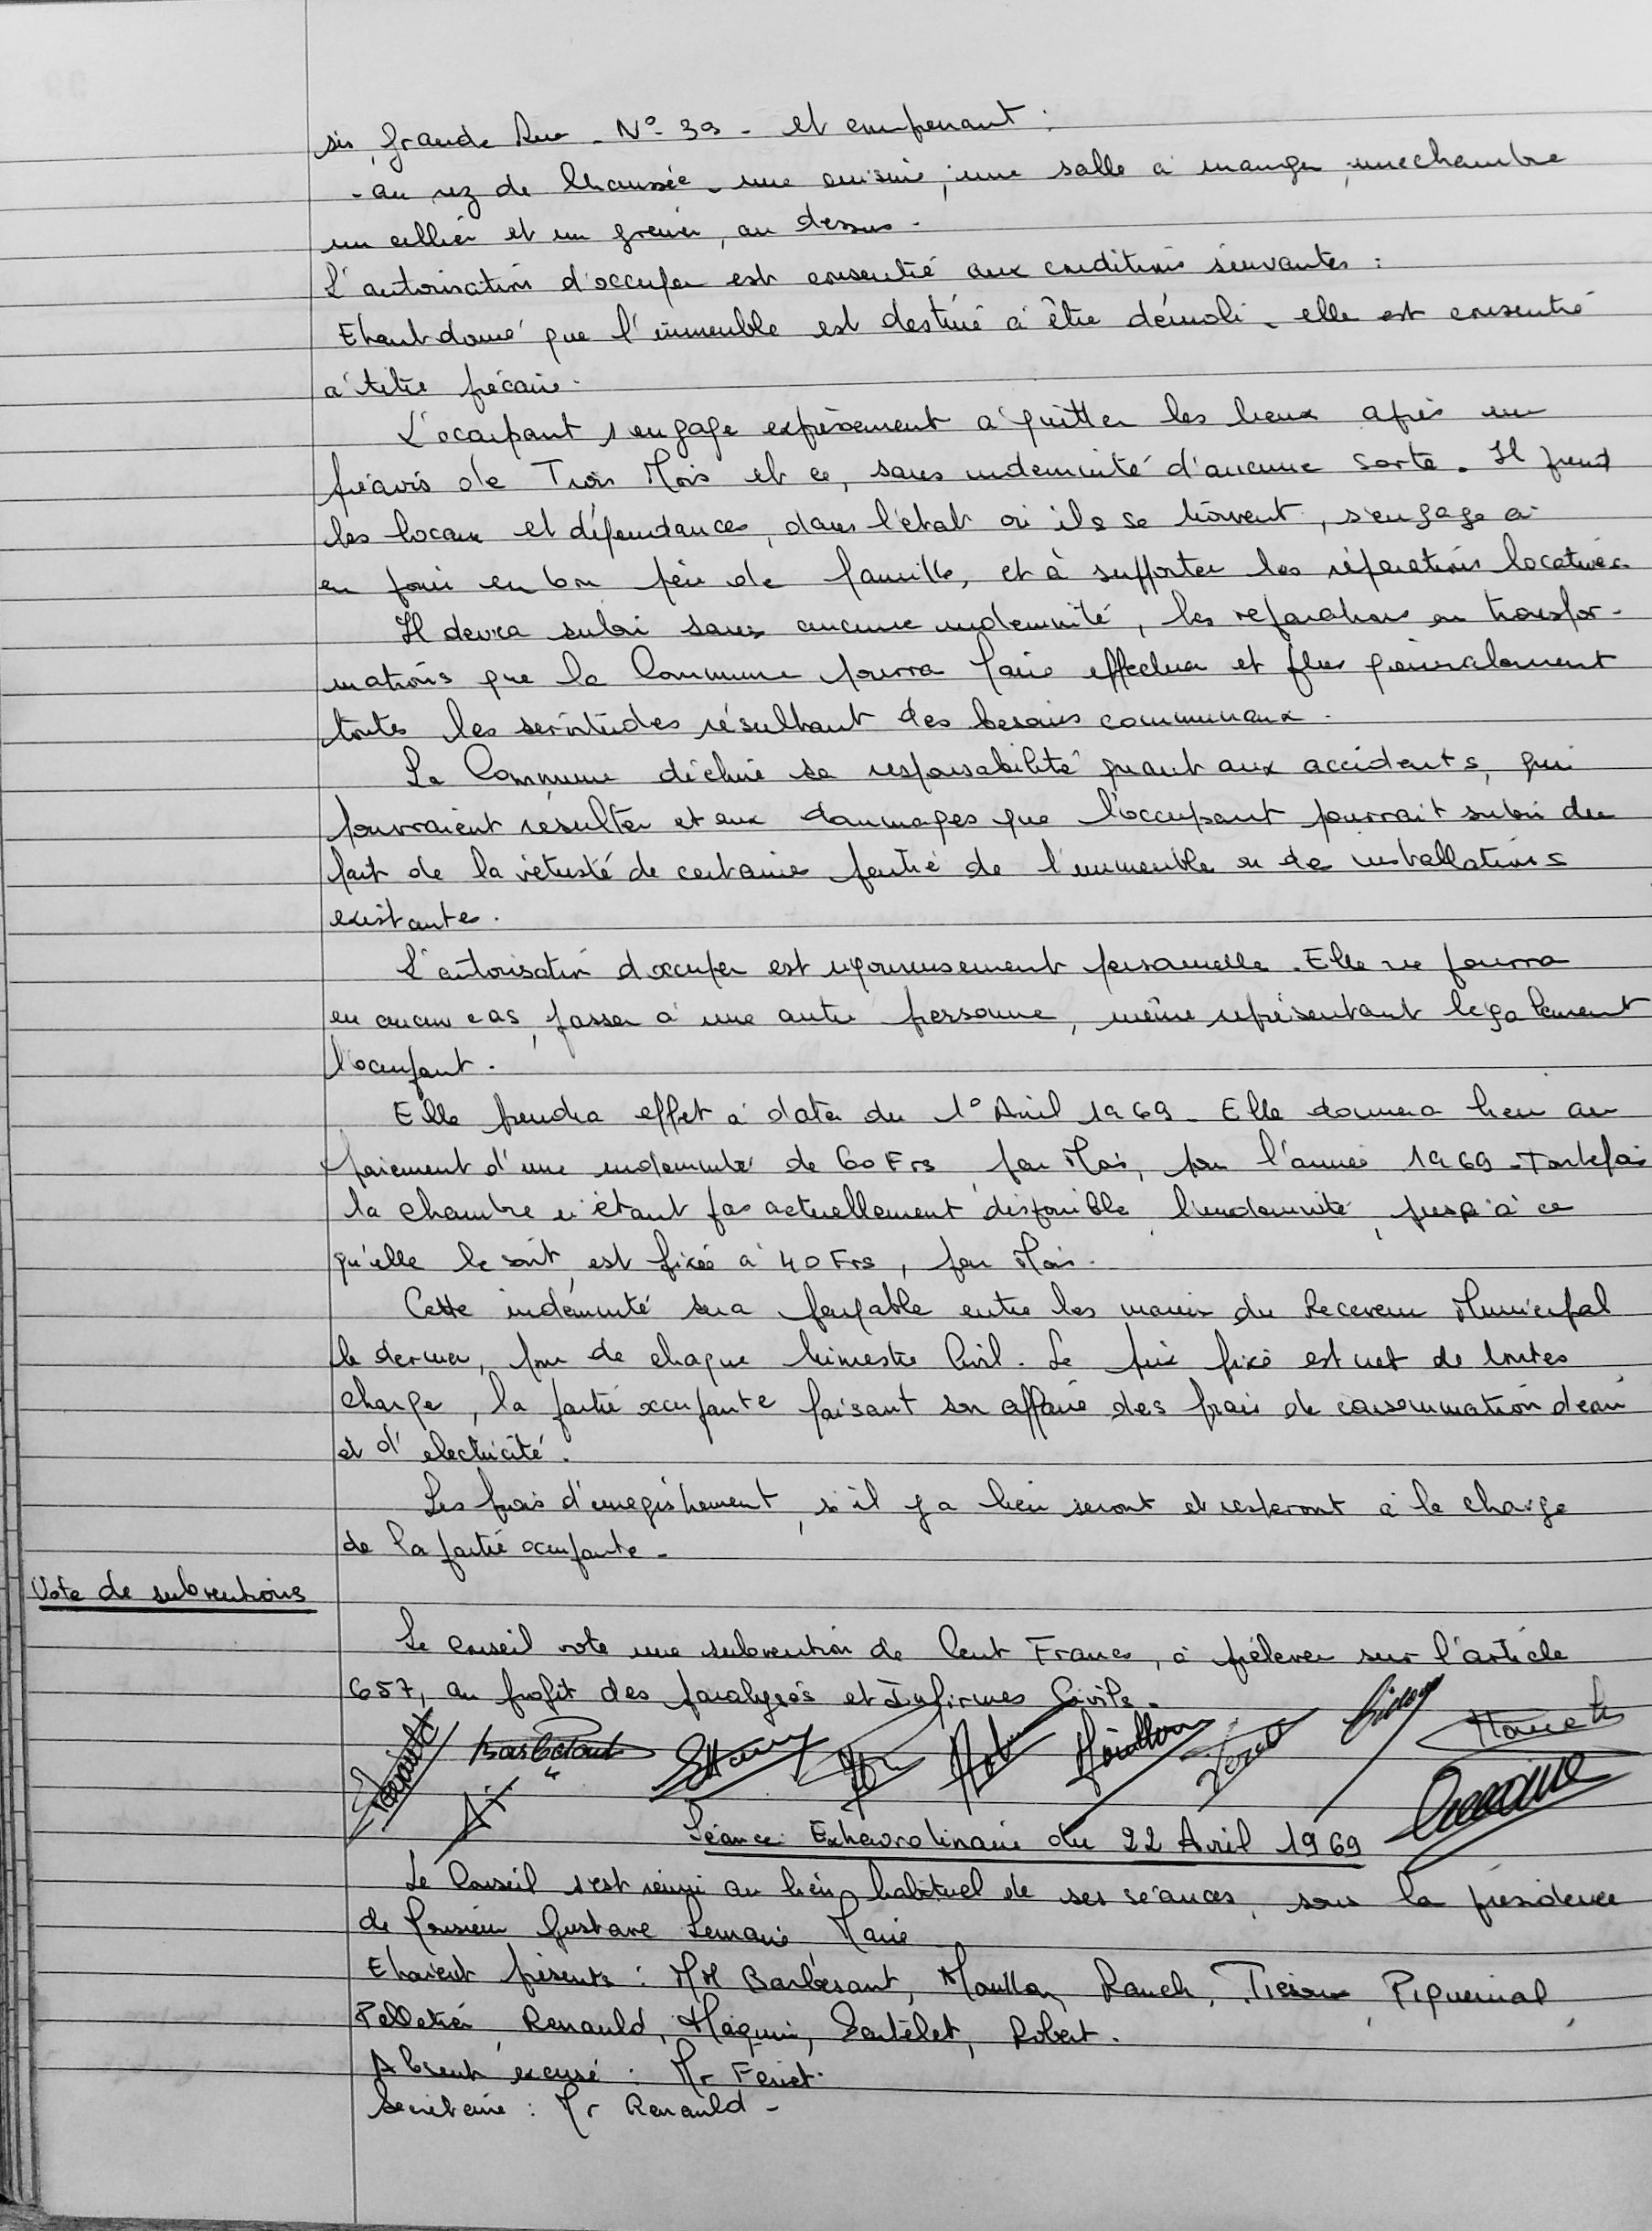 sis, Grande Rue - N° 39 - et comprenant :
- au rez de chaussée - une cuisine, une salle à manger, une chambre
un cellier et un grenier, au dessus.
L'autorisation d'occuper est consentie aux conditions suivantes :
Etant donné que l'immeuble est destiné à être démoli - elle est consentie
à titre précaire.
L'occupant s'engage expressément à quitter les lieux après un
préavis de Trois Mois et ce, sans indemnité d'aucune sorte. Il prend
les locaux et dépendances, dans l'état où ils se trouvent, s'engage à
en jouir en bon père de famille, et à supporter les réparations locatives
Il devra subir sans aucune indemnité, les reparations ou transfor-
mations que la Commune pourra faire effectuer et plus généralement
toutes les servitudes résultant des besoins communaux.
La Commune décline sa responsabilité quant aux accidents, qui
pourraient résulter et aux dommages que l'occupant pourrait subir du
fait de la vétusté de certaine partie de l'immeuble ou de installations
existantes.
L'autorisation d'occuper est rigoureusement personnelle. Elle ne pourra
en aucun cas, passer à une autre personne, même représentant légalement
l'occupant.
Elle prendra effet à dater du 1° Avril 1969 - Elle donnera lieu au
paiement d'une indemnité de 60 Frs, par Mois, pour l'année 1969 - Toutefois
la chambre n'étant pas actuellement disponible, l'indemnité, jusqu'à ce
qu'elle le soit, est fixée à 40 Frs, par Mois.
Cette indemnité sera payable entre les mains du Receveur Municipal
le dernier, jour de chaque trimestre Civil. Le prix fixé est net de toutes
charge, la partie occupante faisant son affaire des frais de consommation d'eau
et d'électricité.
Les frais d'enregistrement, s'il y a lieu seront et resteront à la charge
de la partie occupante -
Vote de subventions
Le Conseil vote une subvention de Cent Francs, à prélever sur l'article
657, au profit des paralysés et Infirmes Civils.
Séance Extraordinaire du 22 Avril 1969
Le Conseil s'est réuni au lieu habituel de ses séances, sous la présidence
de Monsieur Gustave Lemaire Maire
Etaient présents : MM Barbesant, Moullon, Rauch, Piquerial,
Pelletier, Renauld, Haquin, Robert.
Absent excusé : Mr Feriet.
Secrétaire : Mr Renauld -